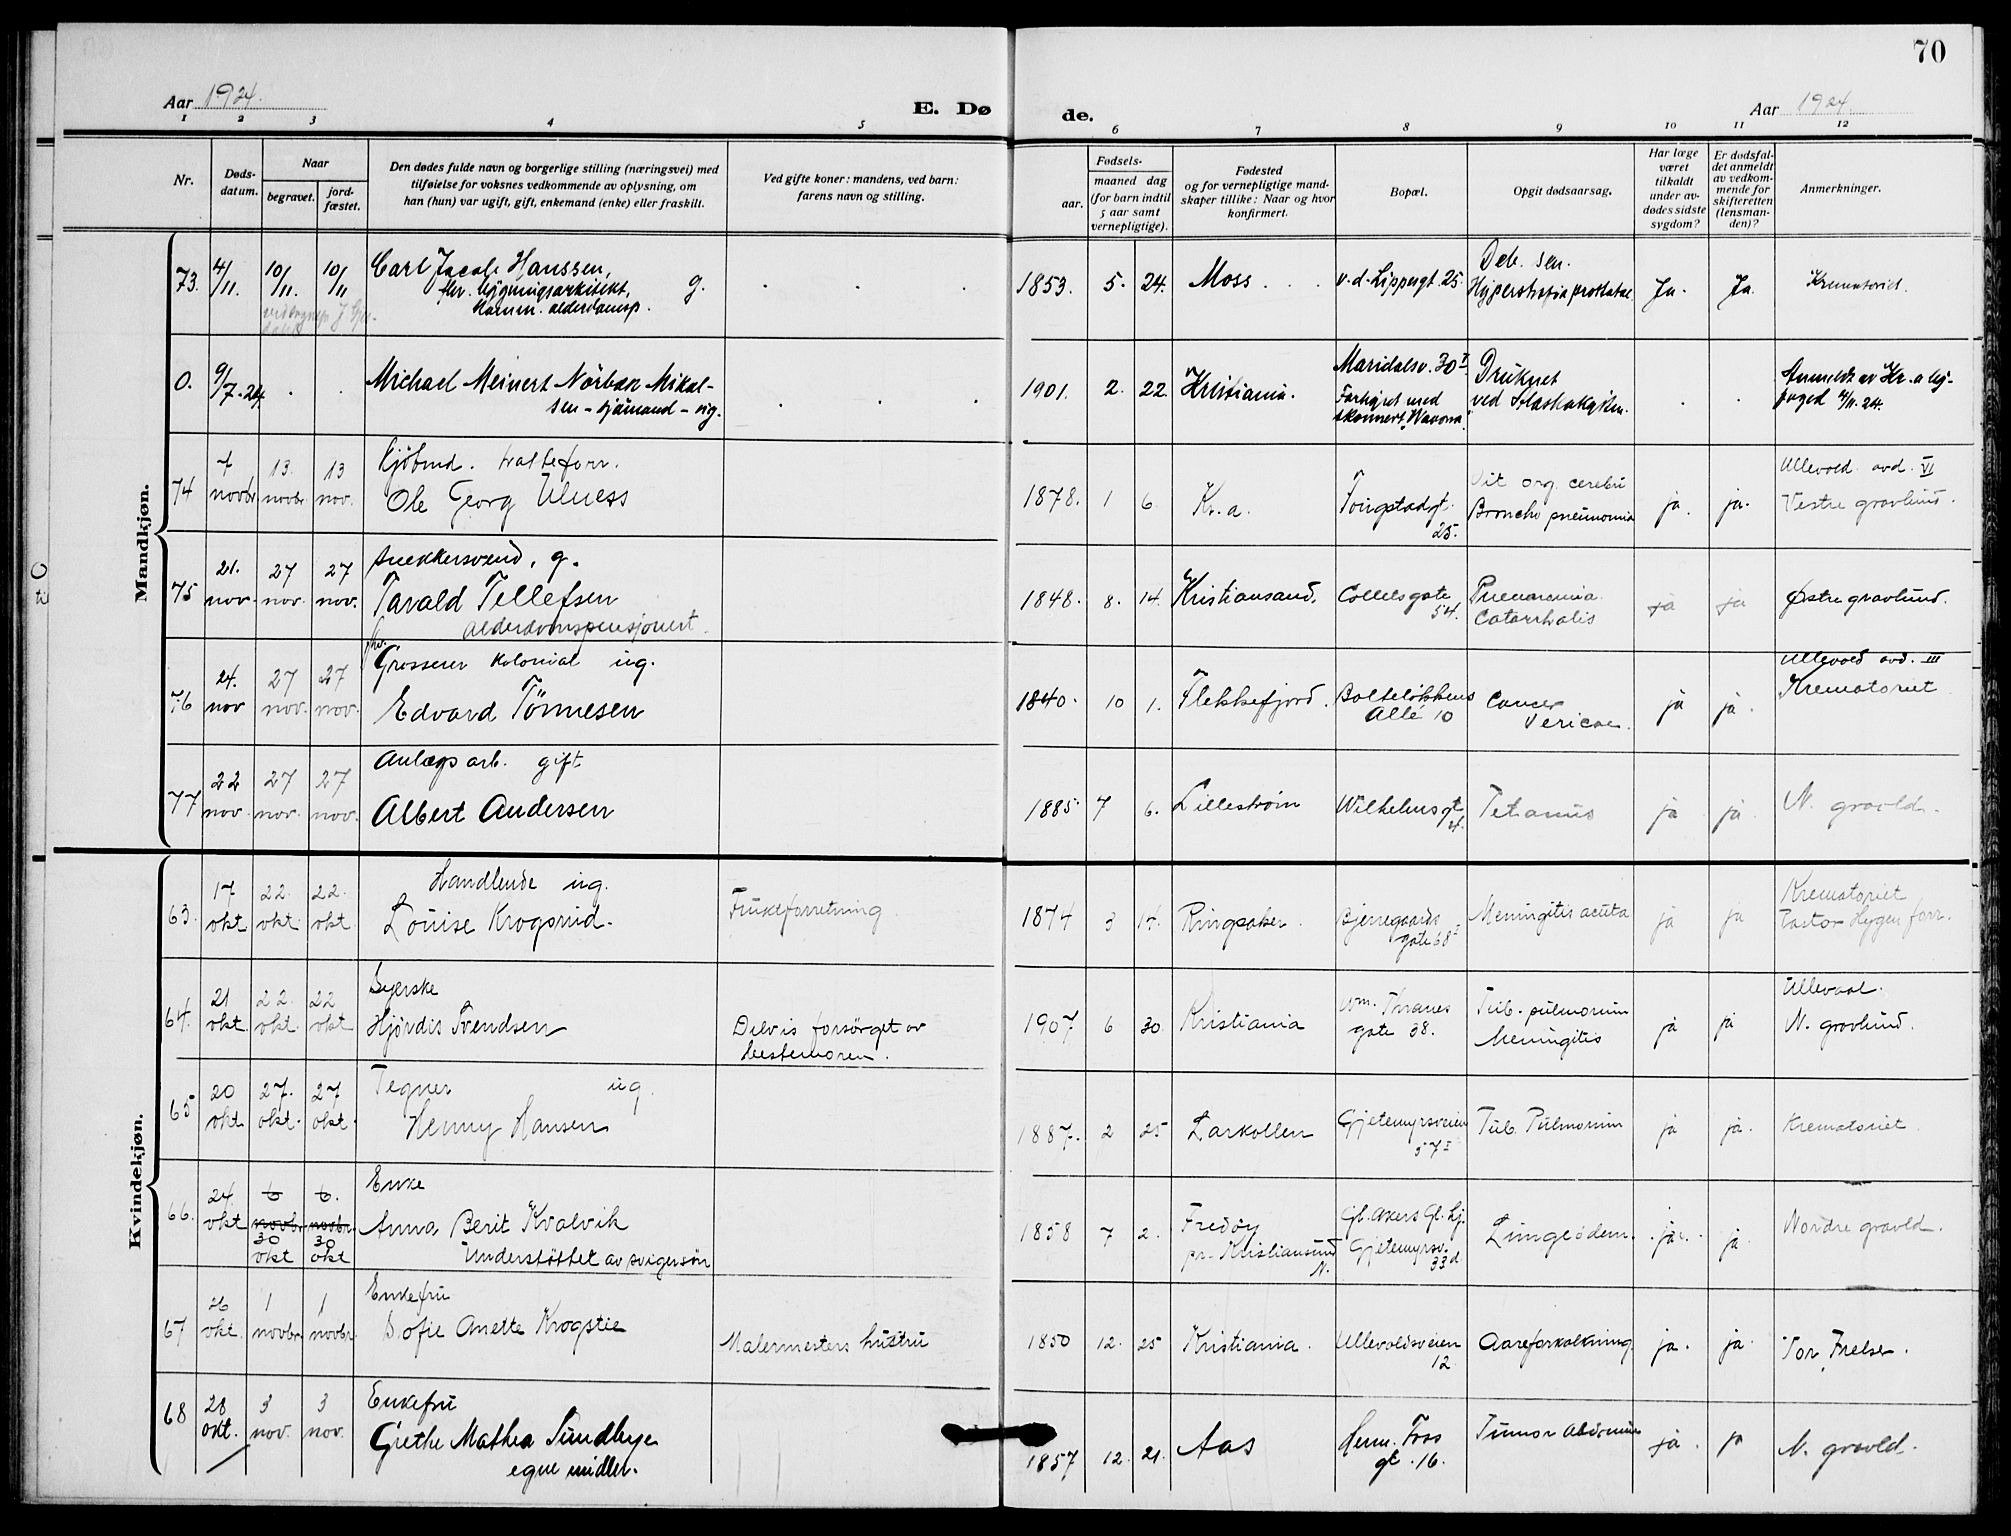 70
Aar 1924.
E. Døde.
Aar 1924.
1 2 3 4 5 6 7 8 9 10 11 12
Nr.
Døds-
datum.
Naar
begravet.
jord-
fæstet.
Den dødes fulde navn og borgerlige stilling (næringsvei) med
tilføielse for voksnes vedkommende av oplysning, om
han (hun) var ugift, gift, enkemand (enke) eller fraskilt.
Ved gifte koner: mandens, ved barn:
farens navn og stilling.
Fødsels-
aar.
maaned dag
(for barn indtil
5 aar samt
vernepligtige).
Fødested
og for vernepligtige mand-
skaper tillike: Naar og hvor
konfirmert.
Bopæl.
Opgit dødsaarsag.
Har læge
været
tilkaldt
under av-
dødes sidste
sygdom?
Er dødsfal-
det anmeldt
av vedkom-
mende for
skifteretten
(lensman-
den)?
Anmerkninger.
Mandkjøn.
73. 4/11. 10/11. 10/11
Carl Jacob Hanssen, g.
fhv. bygningsarkitekt,
Komm. alderdomsp.
1853. 5. 24. Moss
v. d. Lippesgt. 25.
Deb. sen.
Hypertrofia prostatae
Ja. Ja. Krematoriet.
0. 9/7.24.
Michael Meinert Nörbæk Mikal-
sen - sjömand - ug.
1901. 2. 22. Kristiania.
Maridalsv. 30 I
Forhyret med
skonnert "Wawona"
Druknet
ved Alaskakysten.
Anmeldt av Kr.a by-
foged 4/11.24.
74 7 novbr 13. novbr 13 nov.
Kjöbmd. trælasteforr.
Ole Georg Ulness
1878. 1 6 Kr.a.
Tougstadgt.
25.
Vit. org. cerebri
Broncho pneumonia
ja. ja.
Ullevold avd. VI
Vestre gravlund.
75 21. nov. 27 nov. 27 nov.
Snekkersvend, g.
Tarald Tellefsen
alderdomspensjonert.
1848. 8. 14. Kristiansand.
Colletsgate
54.
Pneumonia
Catarrhalis
ja ja Østre gravlund.
76 24. nov 27 nov. 27 nov.
fhv.
Grosserer kolonial ug.
Edvard Tönnesen
1840. 10 1. Flekkefjord.
Bolteløkkens
Allé 10
Cancer
Vesicae.
ja ja.
Ullevold avd. III
Krematoriet
77 22 nov. 27 nov. 27 nov.
Anlægs arb. gift
Albert Andersen
1885 7 6. Lillestrøm
Wilhelmsgt
4.
Tetanus
ja ja N. gravld.
Kvindekjøn.
63. 17 okt 22. okt. 22. okt.
Handlende ug.
Louise Krogsrud.
Fruktforretning
1874 3 14. Ringsaker.
Bjerregaards
gate 68 I
Meningitis acuta
ja ja
Krematoriet
Pastor Hygen forr.
64. 21 okt. 22. okt. 22 okt
Syerske
Hjördis Svendsen
Delvis forsörget av
bestemoren.
1907. 6 30. Kristiania
Wm. Thranes
gate 38.
Tub. pulmonum
Meningitis
ja ja
Ullevaal.
N. gravlund.
65 20 okt. 27. okt. 27 okt.
Tegner ug.
Henny Hansen
1887. 2 25 Larkollen
Gjetemyrsveien
57 I
Tub. Pulmonum
ja ja. Krematoriet
66. 24. okt 6 novbr. 6. novbr.
30 okt 30 okt
Enke
Anna Berit Kvalvik
Understöttet av svigersön
1858 7 2.
Fredöy
pr. Kristiansund
N.
Gl. Akers Gl. hj.
Gjetemyrsv.
33 d.
Lungeödem.
ja. ja. Nordre gravld.
67 26 okt. 1 novbr. 1 novbr.
Enkefru
Sofie Anette Krogstie
Malermesters hustru
1850 12. 25 Kristiania.
Ullevoldsveien
12.
Aareforkalkning.
ja. ja. Vor Frelser.
68 28 okt. 3 nov. 3 nov.
Enkefru
Grethe Mathea Sundbye
egne midler.
1857 12. 21. Aas
Herm. Foss
gt. 16.
Tumor Abdominis
ja. ja N. gravld.